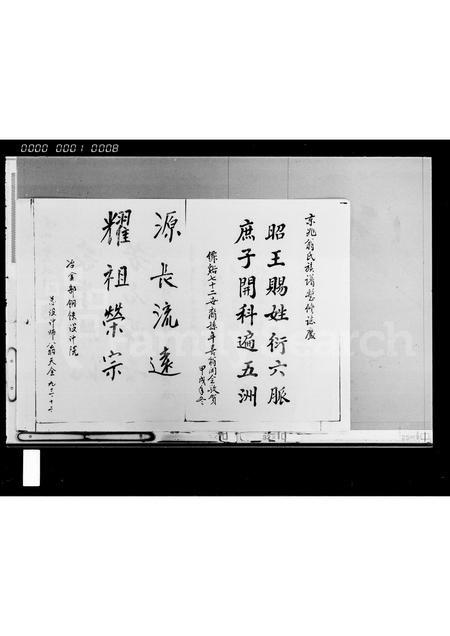 0000 0001 0008
京兆翁氏族譜暫修誌慶
昭王賜姓衍六脈
庶子開科遍五洲
七十二世裔孫 翁同全敬賀
甲戌年冬
源長流遠
耀祖榮宗
冶金部鋼鐵設計院
總設計師 翁天金